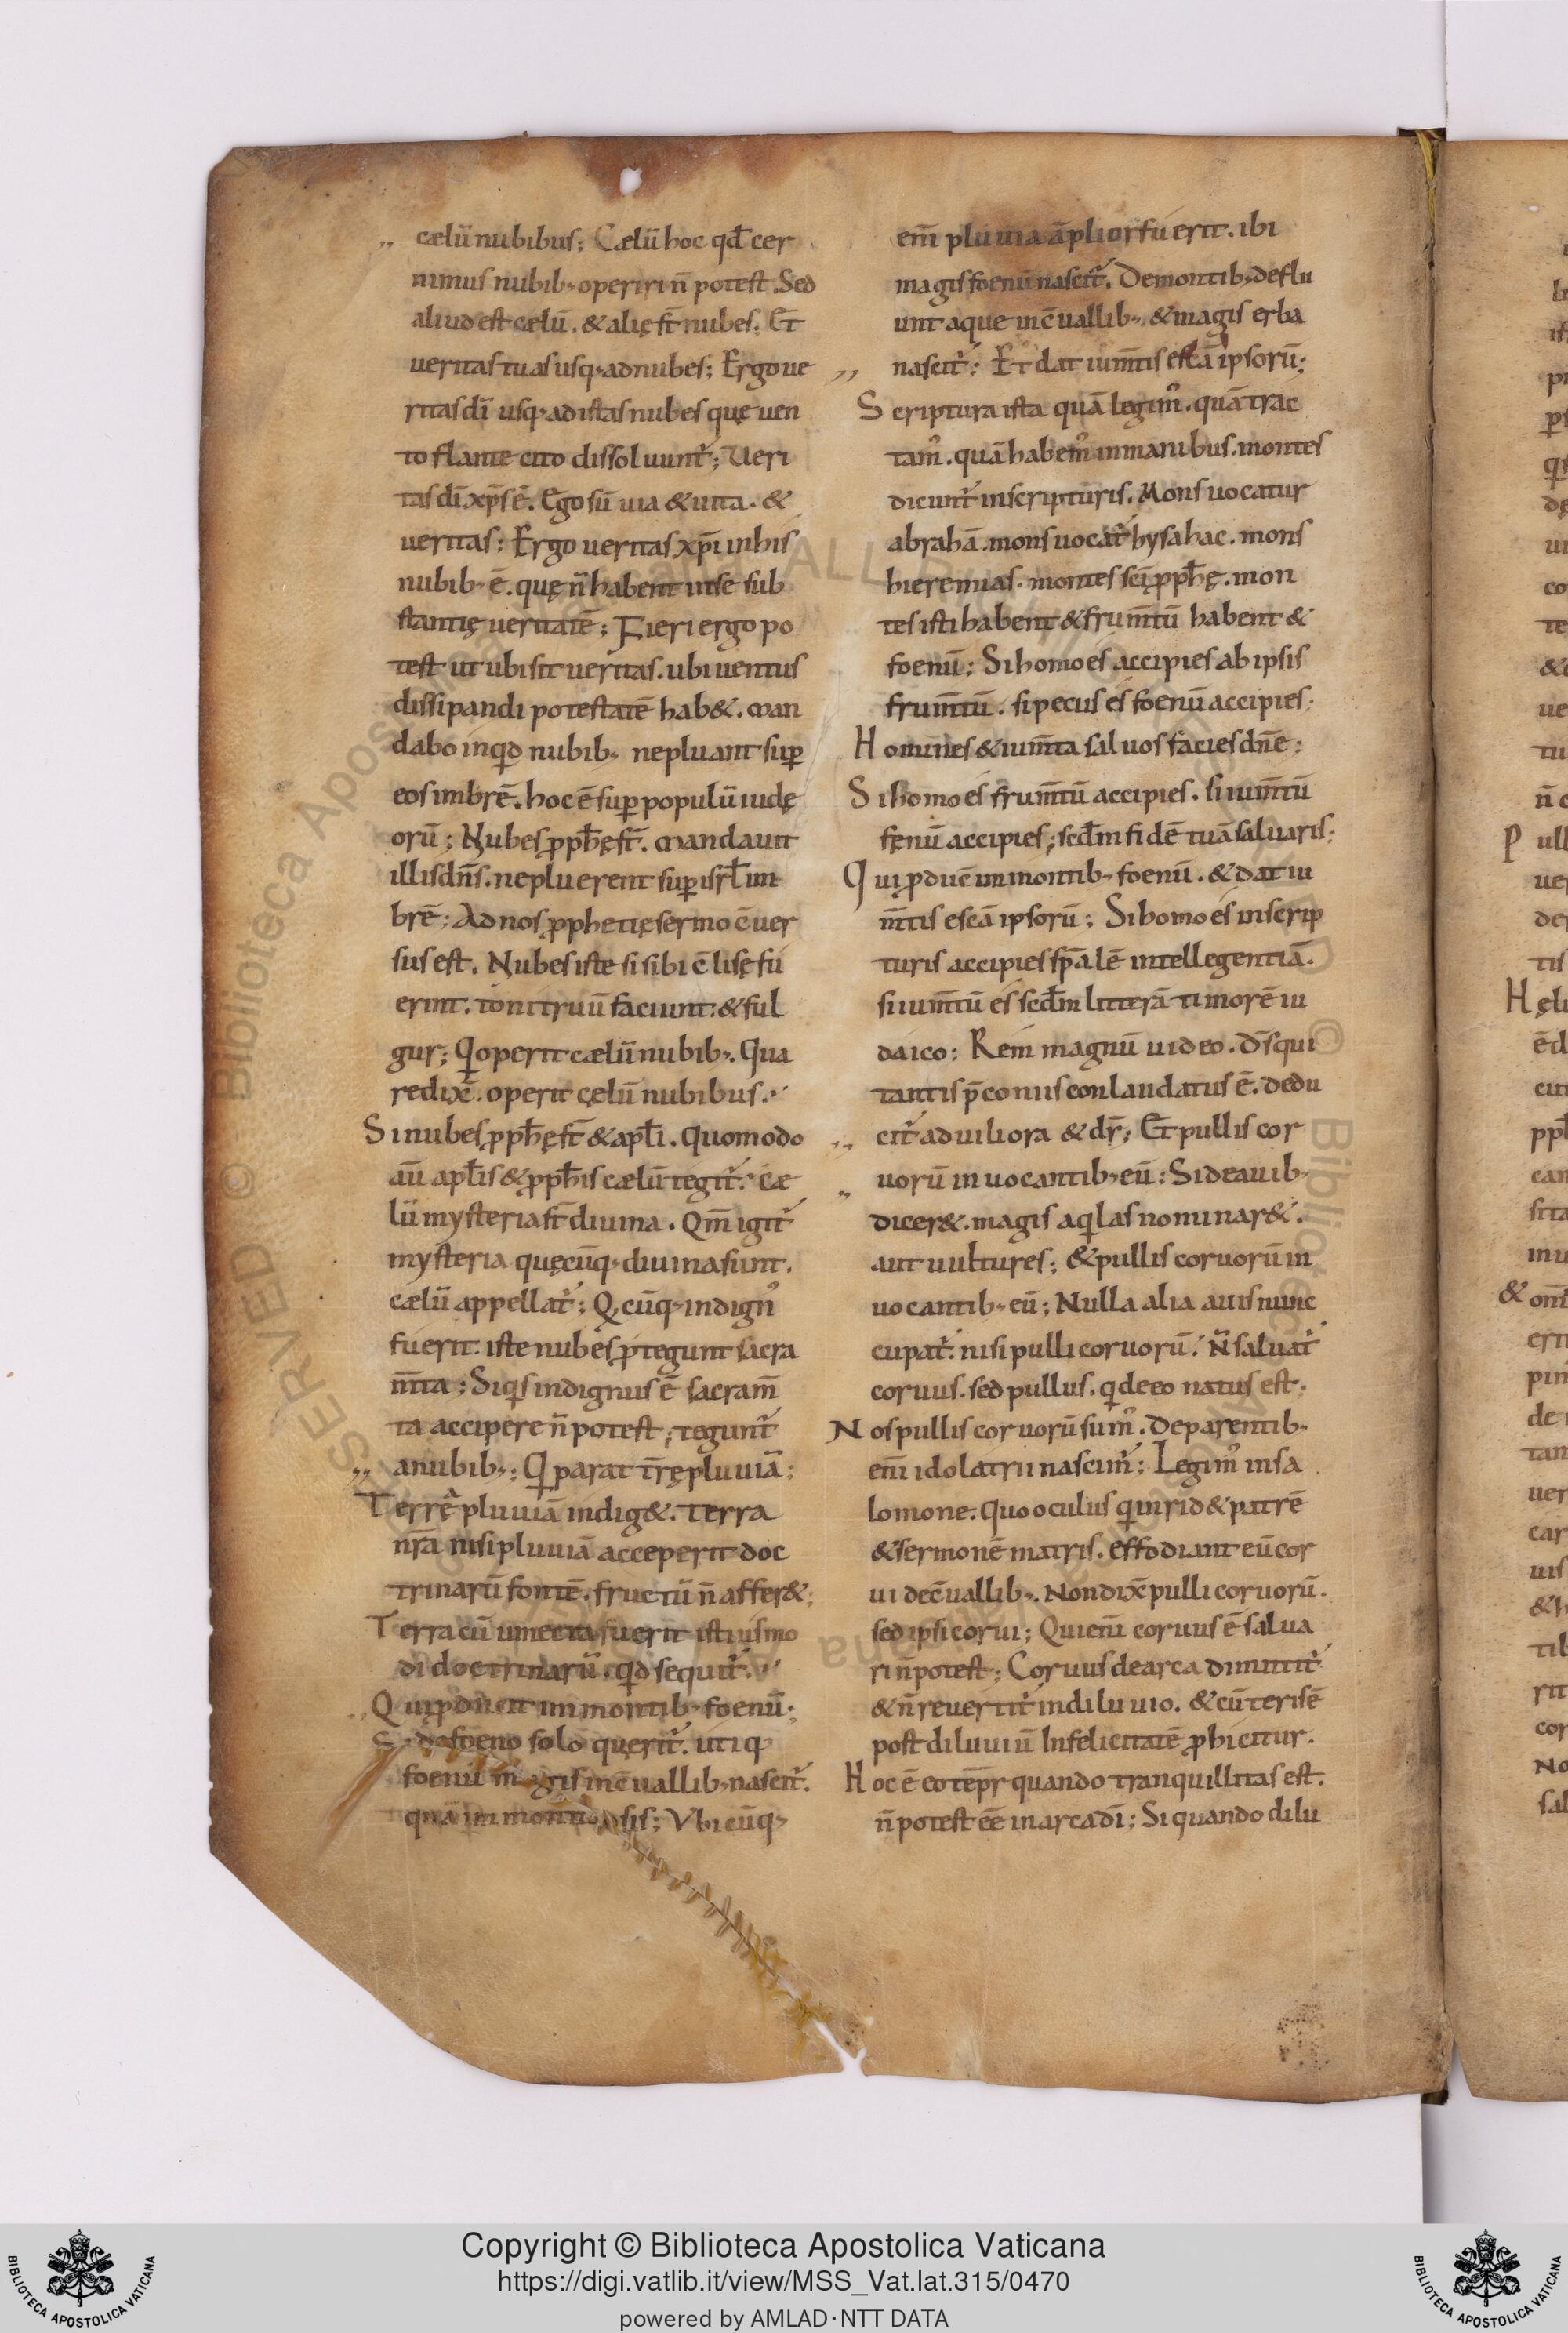 cælū nubibus; Cælū hoc qd̄ cer
nimus nubib; operiri n̄ potest. Sed
aliud est cælū. & alię st̄ nubes. Et
ueritas tua usq; ad nubes; Ergo ue
ritas dī usq; ad istas nubes quę uen
to flante cito dissoluunt᷑; Ueri
tas dī xp̄s ē. Ego sū uia & uita. &
ueritas; Ergo ueritas xp̄i in his
nubib; ē. quę n̄ habent in se sub
stantię ueritatē; Fieri ergo po
test ut ubi sit ueritas. ubi uentus
dissipandi potestatē hab&. man
dabo inqd nubib; ne pluant suꝑ
eos imbrē. hoc ē suꝑ populū iudę
orū; Nubes ꝓph̄ę st̄. mandauit
illis dn̄s. ne pluerent suꝑ isrl̄ im
brē; Ad nos ꝓphetię sermo c̄uer
sus est. Nubes iste si sibi c̄lisę fu
erint. tonitruū faciunt. & ful
gur; Q operit cælū nubib;. Qua
re dix̄. operit cęlū nubibus.
Si nubes ꝓph̄ę st̄ & apl̄i. quomodo
aū apl̄is & ꝓph̄is cælū tegit᷑. Cæ
lū mysteria st̄ diuina. Qm̄ igit᷑
mysteria quęcūq; diuina sunt.
cælū appellat᷑; Q,cūq; indign᷒
fuerit. iste nubes ꝓtegunt sacra
m̄ta; Siq̇s indignus ē sacram̄
ta accipere n̄ potest; tegunt᷑
a nubib;; Q parat tr̄ę pluuiā;
Terrę pluuiā indig&. Terra
nr̄a nisi pluuiā acceperit doc
trinarū fontē. fructū n̄ affer&;
Terra cū umecta fuerit istiusmo
di doctrinarū. qd sequit᷑.
Qui ꝓducit in montib; foenū;
Si de foeno solo querit᷑. utiq;
foenū magis in c̄uallib; nascit᷑.
quā in montuosis; Vbicūq;
em̄ pluuia āplior fuerit. ibi
magis foenū nascit᷑. De montib; deflu
unt aque in c̄uallib;. & magis erba
nascit᷑; Et dat ium̄tis escā ipsorū;
Scriptura ista quā legim᷒. quā trac
tam᷒. quā habem᷒ in manibus. montes
dicunt᷑ in scripturis. Mons uocatur
abrahā. mons uocat᷑ hysahac. mons
hieremias. montes sc̄i ꝓph̄ę. mon
tes isti habent & frum̄tū habent &
foenū; Si homo es accipies ab ipsis
frum̄tū. si pecus es foenū accipies;
Homines & ium̄ta saluos facies dn̄e;
Si homo es frum̄tū accipies. si ium̄tū
fęnū accipies; scd̄m fidē tuā saluaris;
Qui ꝓduc̄ in montib; foenū. & dat iu
m̄tis escā ipsorū; Si homo es in scrip
turis accipies sp̄alē intellegentiā.
si ium̄tū es scd̄m litterā timorē iu
daico; Rem magnū uideo. Ds̄ qui
tantis p̄coniis conlaudatus ē. dedu
cit᷑ ad uiliora & dr̄; Et pullis cor
uorū inuocantib; eū; Si de auib;
dicer&. magis aqlas nominar&.
aut uultures; & pullis coruorū in
uocantib; eū; Nulla alia auis nunc
cupat᷑. nisi pulli coruorū. N̄ saluat᷑
coruus. sed pullus. q de eo natus est;
Nos pullis coruorū sum᷒. De parentib;
em̄ idolatrii nascim᷑; Legim᷒ in sa
lomone. Quo oculus q inrid& patrē
& sermonē matris. effodiant eū cor
ui de c̄uallib;. Non dix̄ pulli coruorū.
sed ipsi corui; Qui enī coruus ē salua
ri n̄ potest; Coruus de arca dimittit᷑
& n̄ reuertit᷑ in diluuio. & cū teris ē
post diluuiū Infelicitatē ꝓhicitur.
Hoc ē eo tēpr̄ quando tranquillitas est.
n̄ potest eē in arca dī; Si quando dilu
Copyright © Biblioteca Apostolica Vaticana
https://digi.vatlib.it/view/MSS_Vat.lat.315/0470
powered by AMLAD·NTT DATA